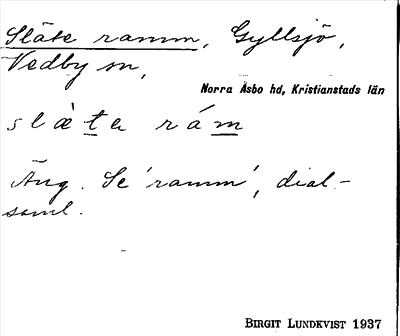 Släte ramm, Gyllsjö,
Vedby sn,
Norra Åsbo hd, Kristianstads län
slὰta rám
Äng. Se 'ramm', dial-
saml.
BIRGIT LUNDKVIST 1937